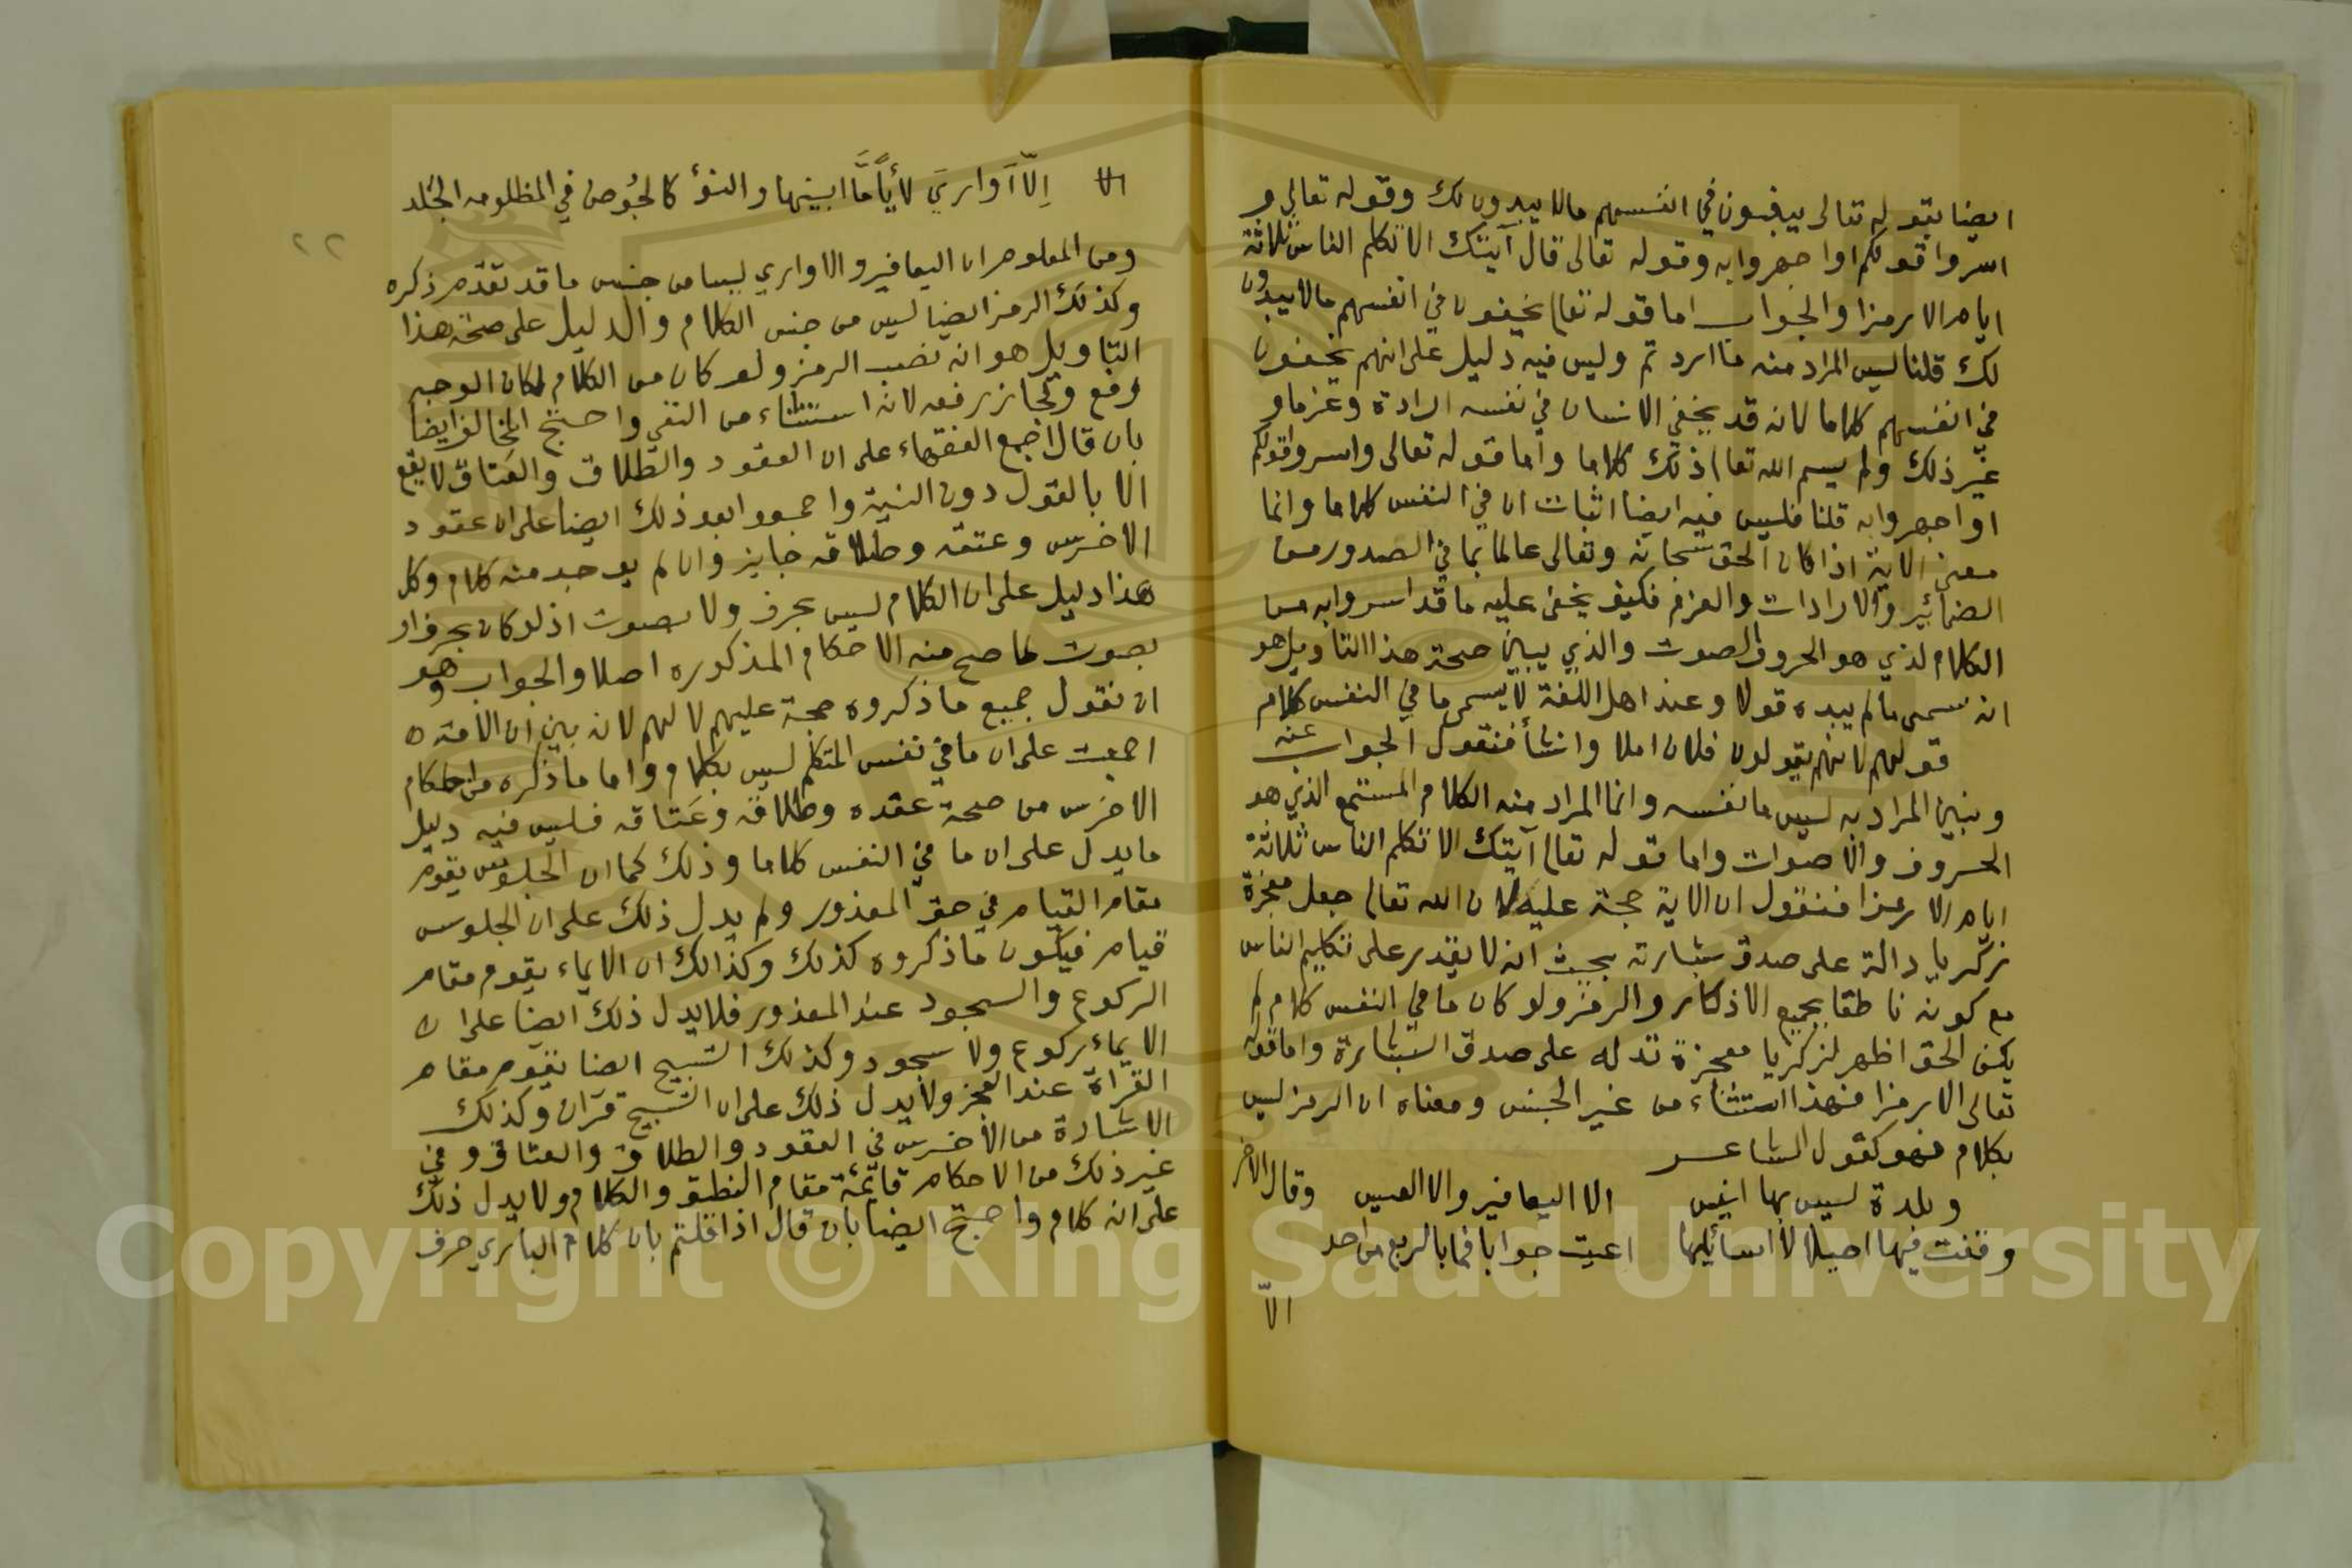 ايضا بقوله تعالى يخفون في انفسهم مالا يبدون لك وقوله تعالى و
اسروا قولكم او اجهروا به وقوله تعالى قال آيتك الا تكلم الناس ثلاثة
ايام الا رمزا والجواب اما قوله تعالى يخفون في انفسهم مالا يبدون
لك قلنا ليس المراد منه ما اردتم وليس فيه دليل على انهم يخفون
في انفسهم كلاما لانه قد يخفي الانسان في نفسه ارادة وعزما و
غير ذلك ولم يسم الله تعالى ذلك كلاما واما قوله تعالى واسروا قولكم
او اجهروا به قلنا فليس فيه ايضا اثبات ان في النفس كلاما وانما
معنى الاية اذا كان الحق سبحانه وتعالى عالما بما في الصدور من
الضمائير والارادات والعزم فكيف يخفى عليه ما قد اسروا به من
الكلام لذي هو الحروف والصوت والذي يبين صحة هذا التاويل هو
انه سمى مالم يبده قولا وعند اهل اللغة لا يسمى ما في النفس كلام
قولهم لانهم يقولون فلان املا وانشأ فنقول الجواب عنه
ونبين المراد به ليس ما نفسه وانما المراد منه الكلام المستمع الذي هو
الحروف والاصوات واما قوله تعالى آيتك الا تكلم الناس ثلاثة
ايام الا رمزا فنقول ان الاية حجة عليه لان الله تعالى جعل معجزة
زكريا دالة على صدق بشارته بحيث انه لا يقدر على تكليم الناس
مع كونه ناطقا بجميع الاذكار والرمز ولو كان ما في النفس كلام لم
يكن الحق اظهر لزكريا معجزة تدله على صدق البشارة واما قوله
تعالى الا رمزا فهذا استثناء من غير الجنس ومعناه ان الرمز ليس
بكلام فهو كقول الشاعر
وبلدة ليس بها انيس الا اليعافير والا العيس وقال الاخر
وقفت فيها اصيلالا اسائلها اعيت جوابا فما بالربع من احد
الّا
الا إلّا آواريَ لأياً مَّا ابينها والنؤ كالحُوض في المظلومه الجُلد
٢٢
ومن المعلوم ان اليعافير والاواري ليسا من جنس ما قد تقدم ذكره
وكذلك الرمز ايضا ليس من جنس الكلام والدليل على صحة هذا
التاويل هو انه نصب الرمز ولو كان من الكلام لكان الوجه
رفع وجاز رفعه لانه استثناء من النفي واحتج المخالف ايضا
بان قال اجمع الفقهاء على ان العقود والطلاق والعتاق لا يقع
الا بالقول دون النية واجمعوا بعد ذلك ايضا على ان عقود
الاخرس وعتقه وطلاقه جايز وان لم يوجد منه كلام وكل
هذا دليل على ان الكلام ليس بحرف ولا بصوت اذ لو كان بحرف او
بصوت لما صح منه الاحكام المذكوره اصلا والجواب وهو
ان نقول جميع ما ذكروه حجة عليهم لا لهم لانه بين ان الامة ه
اجمعت على ان ما في نفس المتكلم ليس بكلام واما ما ذكره من احكام
الاخرس من صحة عقده وطلاقه وعَتاقه فليس فيه دليل
ما يدل على ان ما في النفس كلاما وذلك كما ان الجلوس يقوم
مقام القيام في حق المعذور ولم يدل ذلك على ان الجلوس
قيام فيكون ما ذكروه كذلك وكذالك ان الايماء يقوم مقام
الركوع والسجود عند المعذور فلا يدل ذلك ايضا على ان
الايماء ركوع ولا سجود وكذلك التسبيح ايضا يقوم مقام
القراة عند العجز ولا يدل ذلك على ان التسبيح قرآن وكذلك
الاشارة من الاخرس في العقود والطلاق والعتاق وفي
غير ذلك من الاحكام قائمة مقام النطق والكلام ولا يدل ذلك
على انه كلام واحتج ايضا بان قال اذا قلتم بان كلام الباري حرف
Copyright © King Saud University